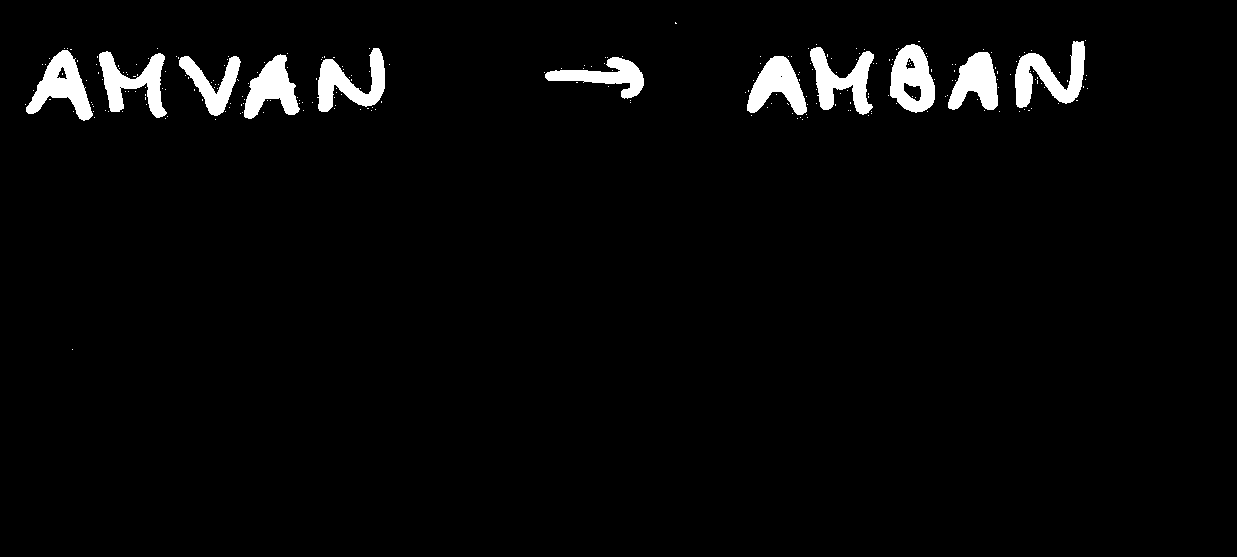 AMVAN → AMBAN